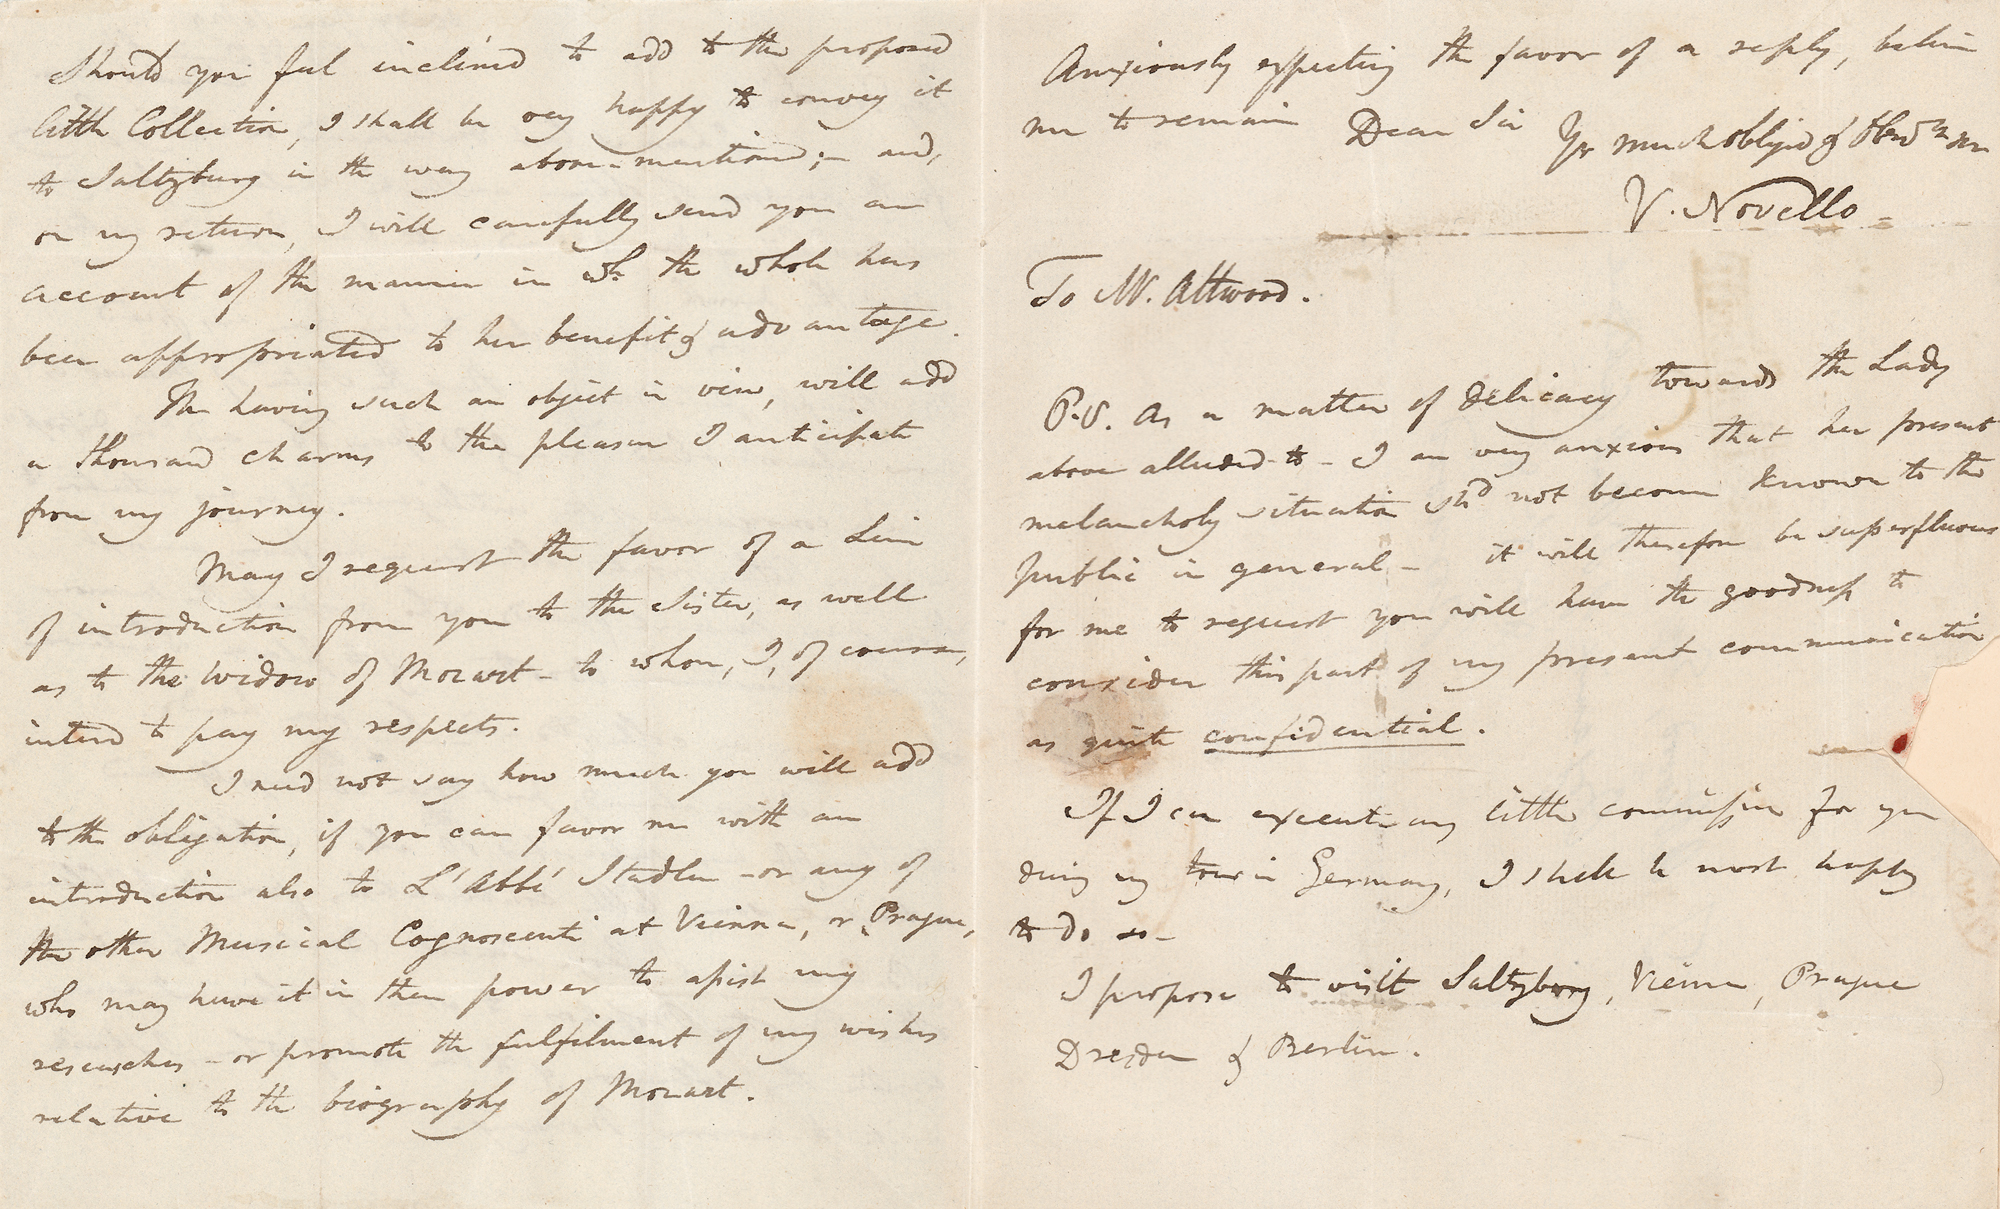 Should you feel inclined to add to the proposed
little Collection, I shall be very happy to convey it
to Saltzburg in the way above-mentioned;– and,
on my return, I will carefully send you an
account of the manner in wh. the whole has
been appropriated to her benefit & advantage.
The having such an object in view, will add
a thousand charms to the pleasure I anticipate
from my journey.
May I request the favor of a Line
of introduction from you to the Sister, as well
as to the Widow of Mozart – to whom, I, of course,
intend to pay my respects.
I need not say how much you will add
to the obligation, if you can favor me with an
introduction also to L'Abbé Stadler – or any of
the other Musical Cognoscenti at Vienna, or Prague,
who may have it in their power to assist my
researches – or promote the fulfilment of my wishes
relative to the biography of Mozart.
Anxiously expecting the favor of a reply, believe
me to remain Dear Sir Yr much obliged & Obedt
V. Novello –
To Mr. Attwood.
P.S. As a matter of delicacy towards the Lady
above alluded to – I am very anxious that her present
melancholy situation shd not become known to the
public in general – it will therefore be superfluous
for me to request you will have the goodness to
consider this part of my present communication
as quite confidential.
If I can execute any little commission for you
during my tour in Germany, I shall be most happy
to do so –
I propose to visit Saltzburg, Vienna, Prague
Dresden & Berlin.